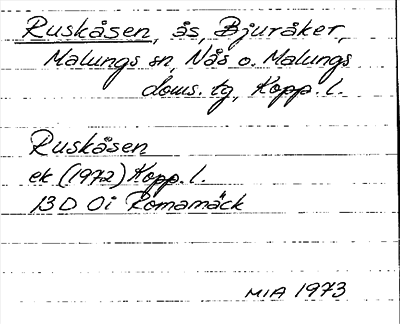 Ruskåsen, ås, Bjuråker,
Malungs sn, Nås o. Malungs
doms. tg, Kopp. l.
Ruskåsen
ek (1972) Kopp. l.
13 D 0i Romamäck
MIA 1973